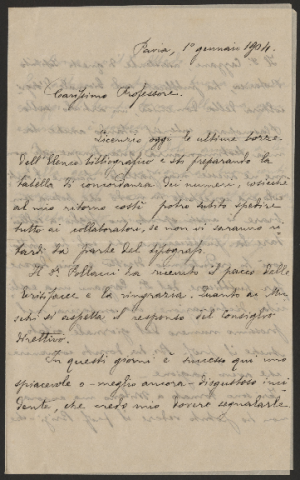 Pavia, 1° gennaio 1904.
Carissimo Professore.
Licenzio oggi le ultime bozze
dell'Elenco bibliografico e sto preparando la
tabella di concordanza dei numeri, cosicchè
al mio ritorno costì potrò subito spedire
tutto ai collaboratori, se non vi saranno ri-
tardi da parte del tipografo.
Il Dr Pollacci ha ricevuto il pacco delle
e la ringrazia. Quanto ai Mu-
schi si aspetta il responso del Consiglio
direttivo.
In questi giorni è successo qui uno
spiacevole o - meglio ancora - disgustoso inci-
dente, che credo mio dovere segnalarle